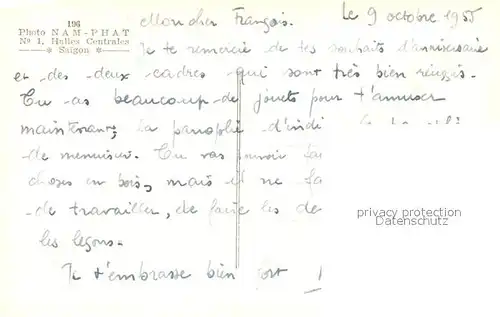 196
Photo NAM-PHAT
Nº 1, Halles Centrales
Saigon
Le 9 octobre 1955
Mon cher François.
Je te remercie de tes souhaits d'anniversaire
et des deux cadres qui sont très bien réussis.
Tu as beaucoup de jouets pour t'amuser
maintenant, la panoplie d'indi
de menuisier. Tu vas pouvoir fai
choses en bois, mais il ne fa
de travailler, de faire les de
les leçons.
Je t'embrasse bien fort
privacy protection
Datenschutz